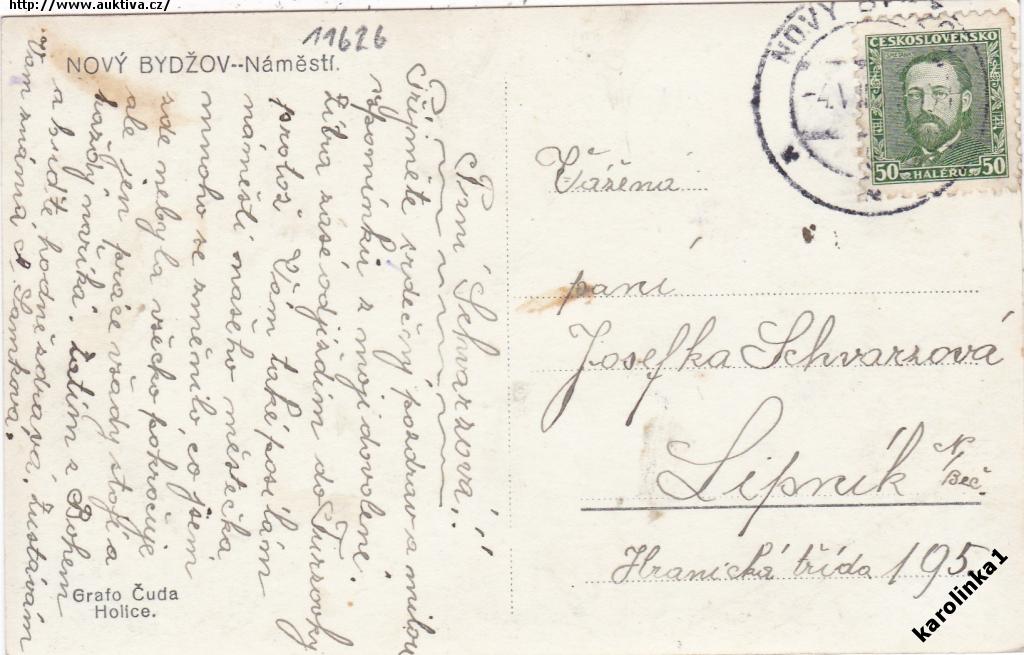 http://www.auktiva.cz/
11626
NOVÝ BYDŽOV--Náměstí.
Paní Schvarzová!!
Přijměte srdečný pozdrav a milou
vzpomínku z moji dovolené.
Zítra zase odjíždím do Turzovky
protož Vám také posílám
náměstí našeho městečka
mnoho se změnilo, co jsem
zde nebyla všecko pokročuje
ale jen práce všady stojí a
každý naříká. Zatím z Bohem
a buďte hodně zdráva, zustávám
Vám známá A. Šimkova.
Grafo Čuda
Holice.
NOVÝ
ČESKOSLOVENSKO
50 HALÉŘŮ 50
Vážená
paní
Josefka Schvarzová
Lipník N/Beč.
Hranická třída 195
karolinka1